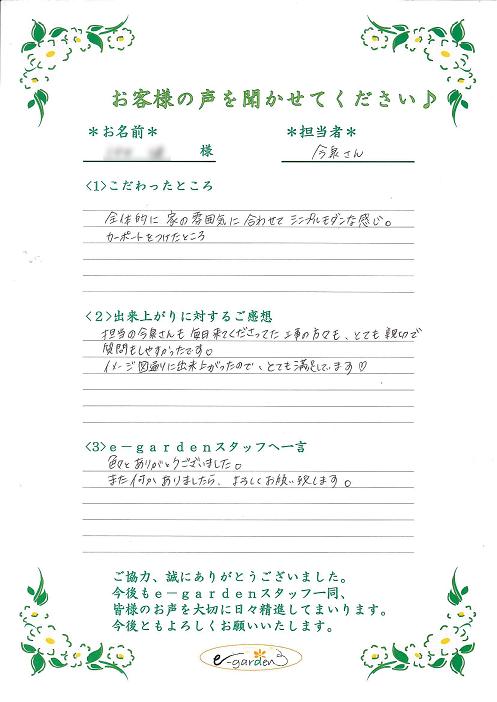 お客様の声を聞かせてください♪
＊お名前＊
＊担当者＊
様
今泉さん
<1>こだわったところ
全体的に 家の雰囲気に 合わせて シンプルモダンな感じ。
カーポートをつけたところ
<2>出来上がりに対するご感想
担当の今泉さんも 毎日来てくださってた 工事の方々も、とても 親切で
質問もしやすかったです。
イメージ図通りに出来上がったので、とても満足しています♡
<3>e－gardenスタッフへ一言
色々と ありがとうございました。
また何か ありましたら、よろしくお願い致します。
ご協力、誠にありがとうございました。
今後もe－gardenスタッフ一同、
皆様のお声を大切に日々精進してまいります。
今後ともよろしくお願いいたします。
e-garden